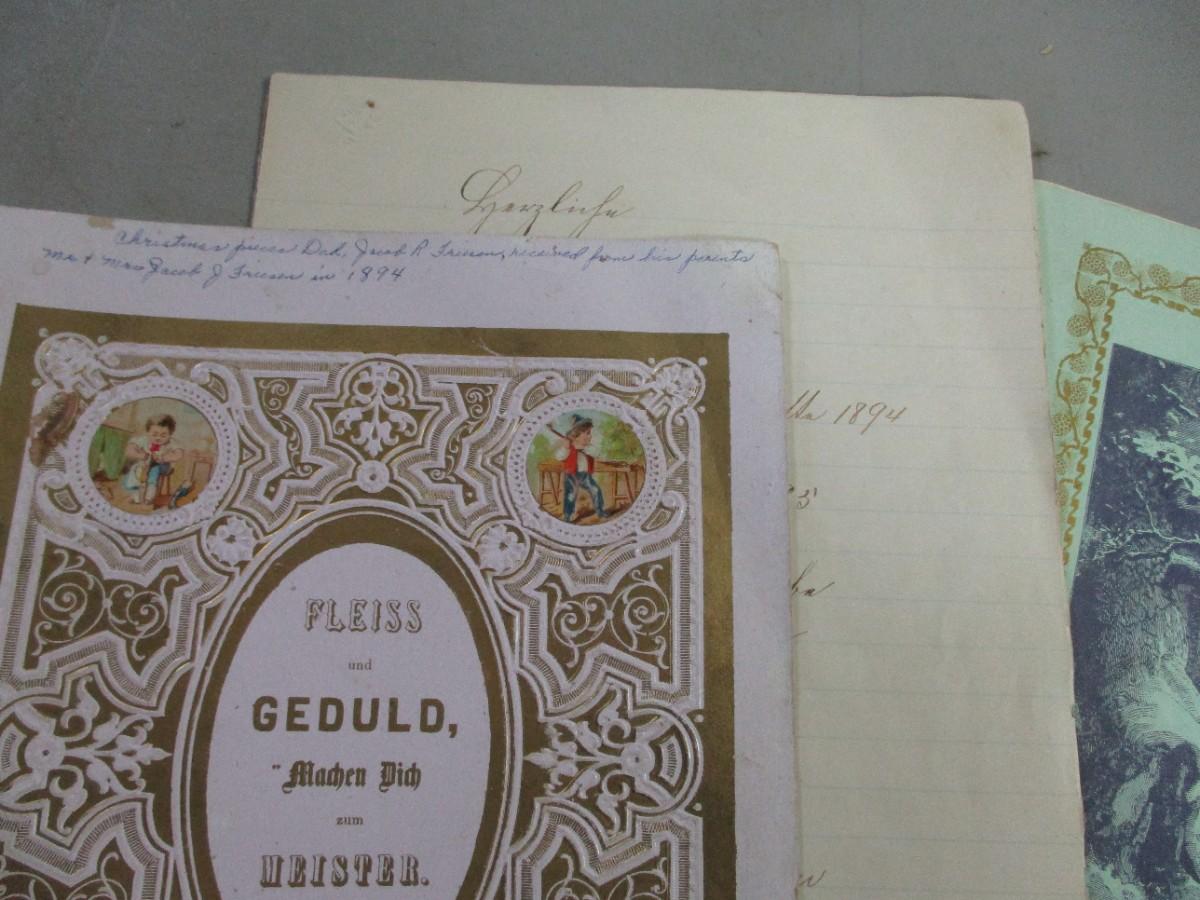 Herzliche
Christmas pieces Dad, Jacob R Friesen, received from his parents
Mr + Mrs Jacob J. Friesen in 1894
1894
FLEISS
und
GEDULD,
"Machen Dich
zum
MEISTER.